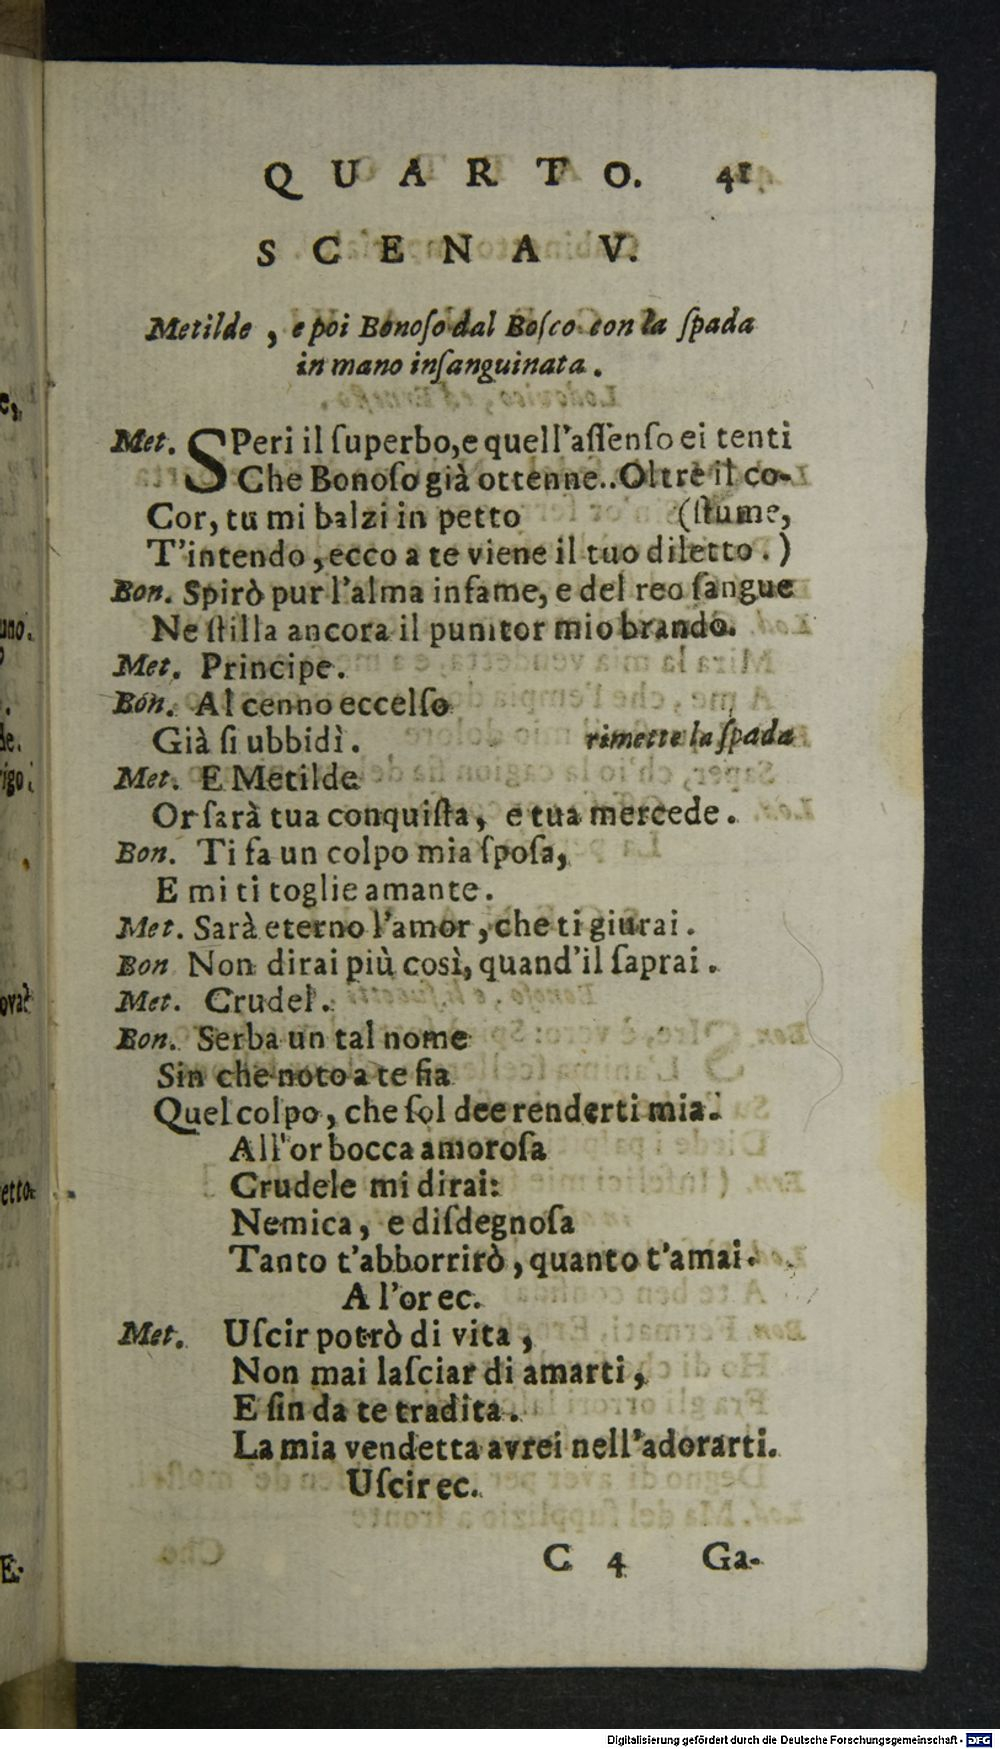 QUARTO. 41
SCENA V.
Metilde, e poi Bonoſo dal Boſco con la ſpada
in mano inſanguinata.
Met. SPeri il ſuperbo, e quell'aſſenſo ei tenti
Che Bonoſo già ottenne.. Oltre il co-
Cor, tu mi balzi in petto (ſtume,
T'intendo, ecco a te viene il tuo diletto.)
Bon. Spirò pur l'alma infame, e del reo ſangue
Ne ſtilla ancora il punitor mio brando.
Met. Principe.
Bon. Al cenno eccelſo
Già ſi ubbidì. rimette la ſpada
Met. E Metilde
Or ſarà tua conquiſta, e tua mercede.
Bon. Ti fa un colpo mia ſpoſa,
E mi ti toglie amante.
Met. Sarà eterno l'amor, che ti giurai.
Bon Non dirai più così, quand'il ſaprai.
Met. Crudel.
Bon. Serba un tal nome
Sin che noto a te fia
Quel colpo, che ſol dee renderti mia.
All'or bocca amoroſa
Crudele mi dirai:
Nemica, e diſdegnoſa
Tanto t'abborrirò, quanto t'amai.
A l'or ec.
Met. Uſcir potrò di vita,
Non mai laſciar di amarti,
E ſin da te tradita.
La mia vendetta avrei nell'adorarti.
Uſcir ec.
C 4 Ga-
Digitalisierung gefördert durch die Deutsche Forschungsgemeinschaft - DFG